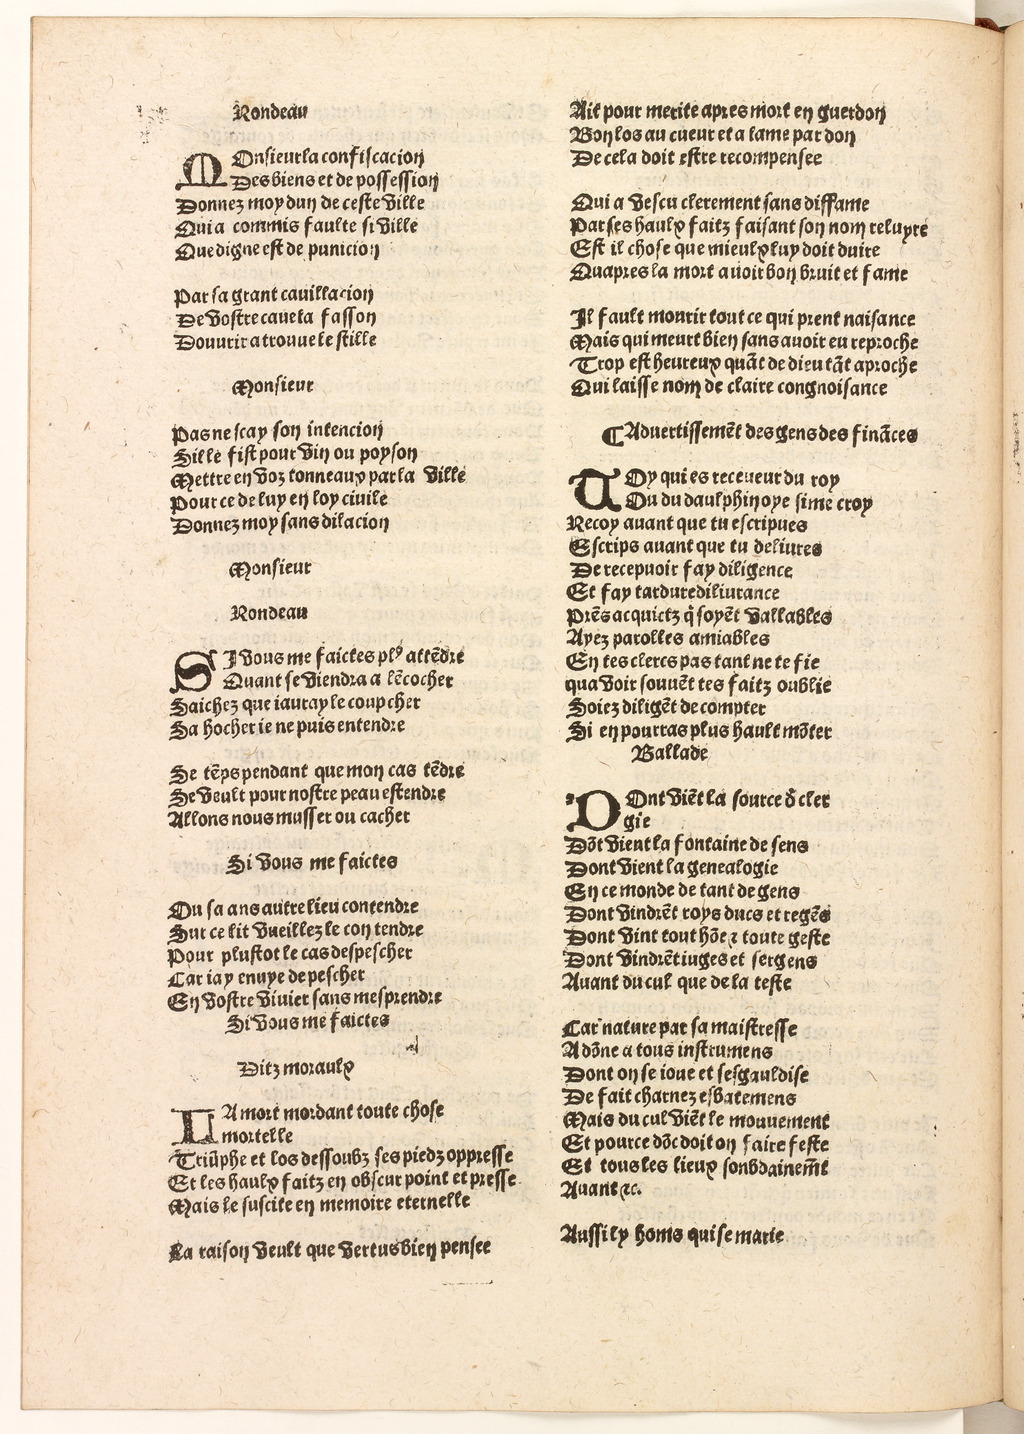 Rondeau
MOnsieur la confiscacion
Des biens et de possession
Donnez moy dun de ceste ville
Qui a commis faulte si ville
Que digne est de punicion
Par sa grant cauillacion
De vostre caue la fasson
Douurir a trouue le stille
Monsieur
Pas ne scay son intencion
Sille fist pour vin ou poyson
Mettre en voz tonneaux par la ville
Pour ce de luy en loy ciuile
Donnez moy sans dilacion
Monsieur
Rondeau
SI vous me faictes plꝰ attẽdre
Quant se viendra a lẽcocher
Saichez que iauray le coup cher
Sa hocher ie ne puis entendre
Se tẽps pendant que mon cas tẽdre
Se veult pour nostre peau estendre
Allons nous musser ou cacher
Si vous me faictes
Ou sa ans autre lieu contendre
Sur ce lit vueillez le con tendre
Pour plustot le cas despescher
Car iay enuye de pescher
En vostre viuier sans mesprendre
Si vous me faictes
Ditz moraulx
LA mort mordant toute chose
mortelle
Triũphe et los dessoubz ses piedz oppresse
Et les haulx faitz en obscur point et presse
Mais le suscite en memoire eternelle
La raison veult que vertus bien pensee
Ait pour merite apres mort en guerdon
Bon los au cueur et a lame pardon
De cela doit estre recompensee
Qui a vescu clerement sans diffame
Par ses haulx faitz faisant son nom reluyre
Est il chose que mieulx luy doit duire
Quapres la mort auoir bon bruit et fame
Il fault mourir tout ce qui prent naisance
Mais qui meurt bien sans auoir eu reproche
Trop est heureux quãt de dieu tãt aproche
Qui laisse nom de claire congnoisance
¶Aduertissemẽt des gens des finãces
TOy qui es receueur du roy
Ou du daulphin oye si me croy
Recoy auant que tu escripues
Escrips auant que tu deliures
De recepuoir fay diligence
Et fay tardure diliurance
Prẽs acquictz q̃ soyẽt vallables
Ayez parolles amiables
En tes clercs pas tant ne te fie
qua voir souuẽt tes faitz oublie
Soiez diligẽt de compter
Si en pourras plus hault mõter
Ballade
DOnt viẽt la source d̃ cler
gie
Dõt vient la fontaine de sens
Dont vient la genealogie
En ce monde de tant de gens
Dont vindrẽt roys ducs et regẽs
Dont vint tout hõe ⁊ toute geste
Dont vindrẽt iuges et sergens
Auant du cul que de la teste
Car nature par sa maistresse
A dõne a tous instrumens
Dont on se ioue et sesgauldise
De fait charnez esbatemens
Mais du cul viẽt le mouuement
Et pource dõc doit on faire feste
Et tous les lieux sonbdainemẽt
Auant ⁊c.
Aussi ly homs qui se marie